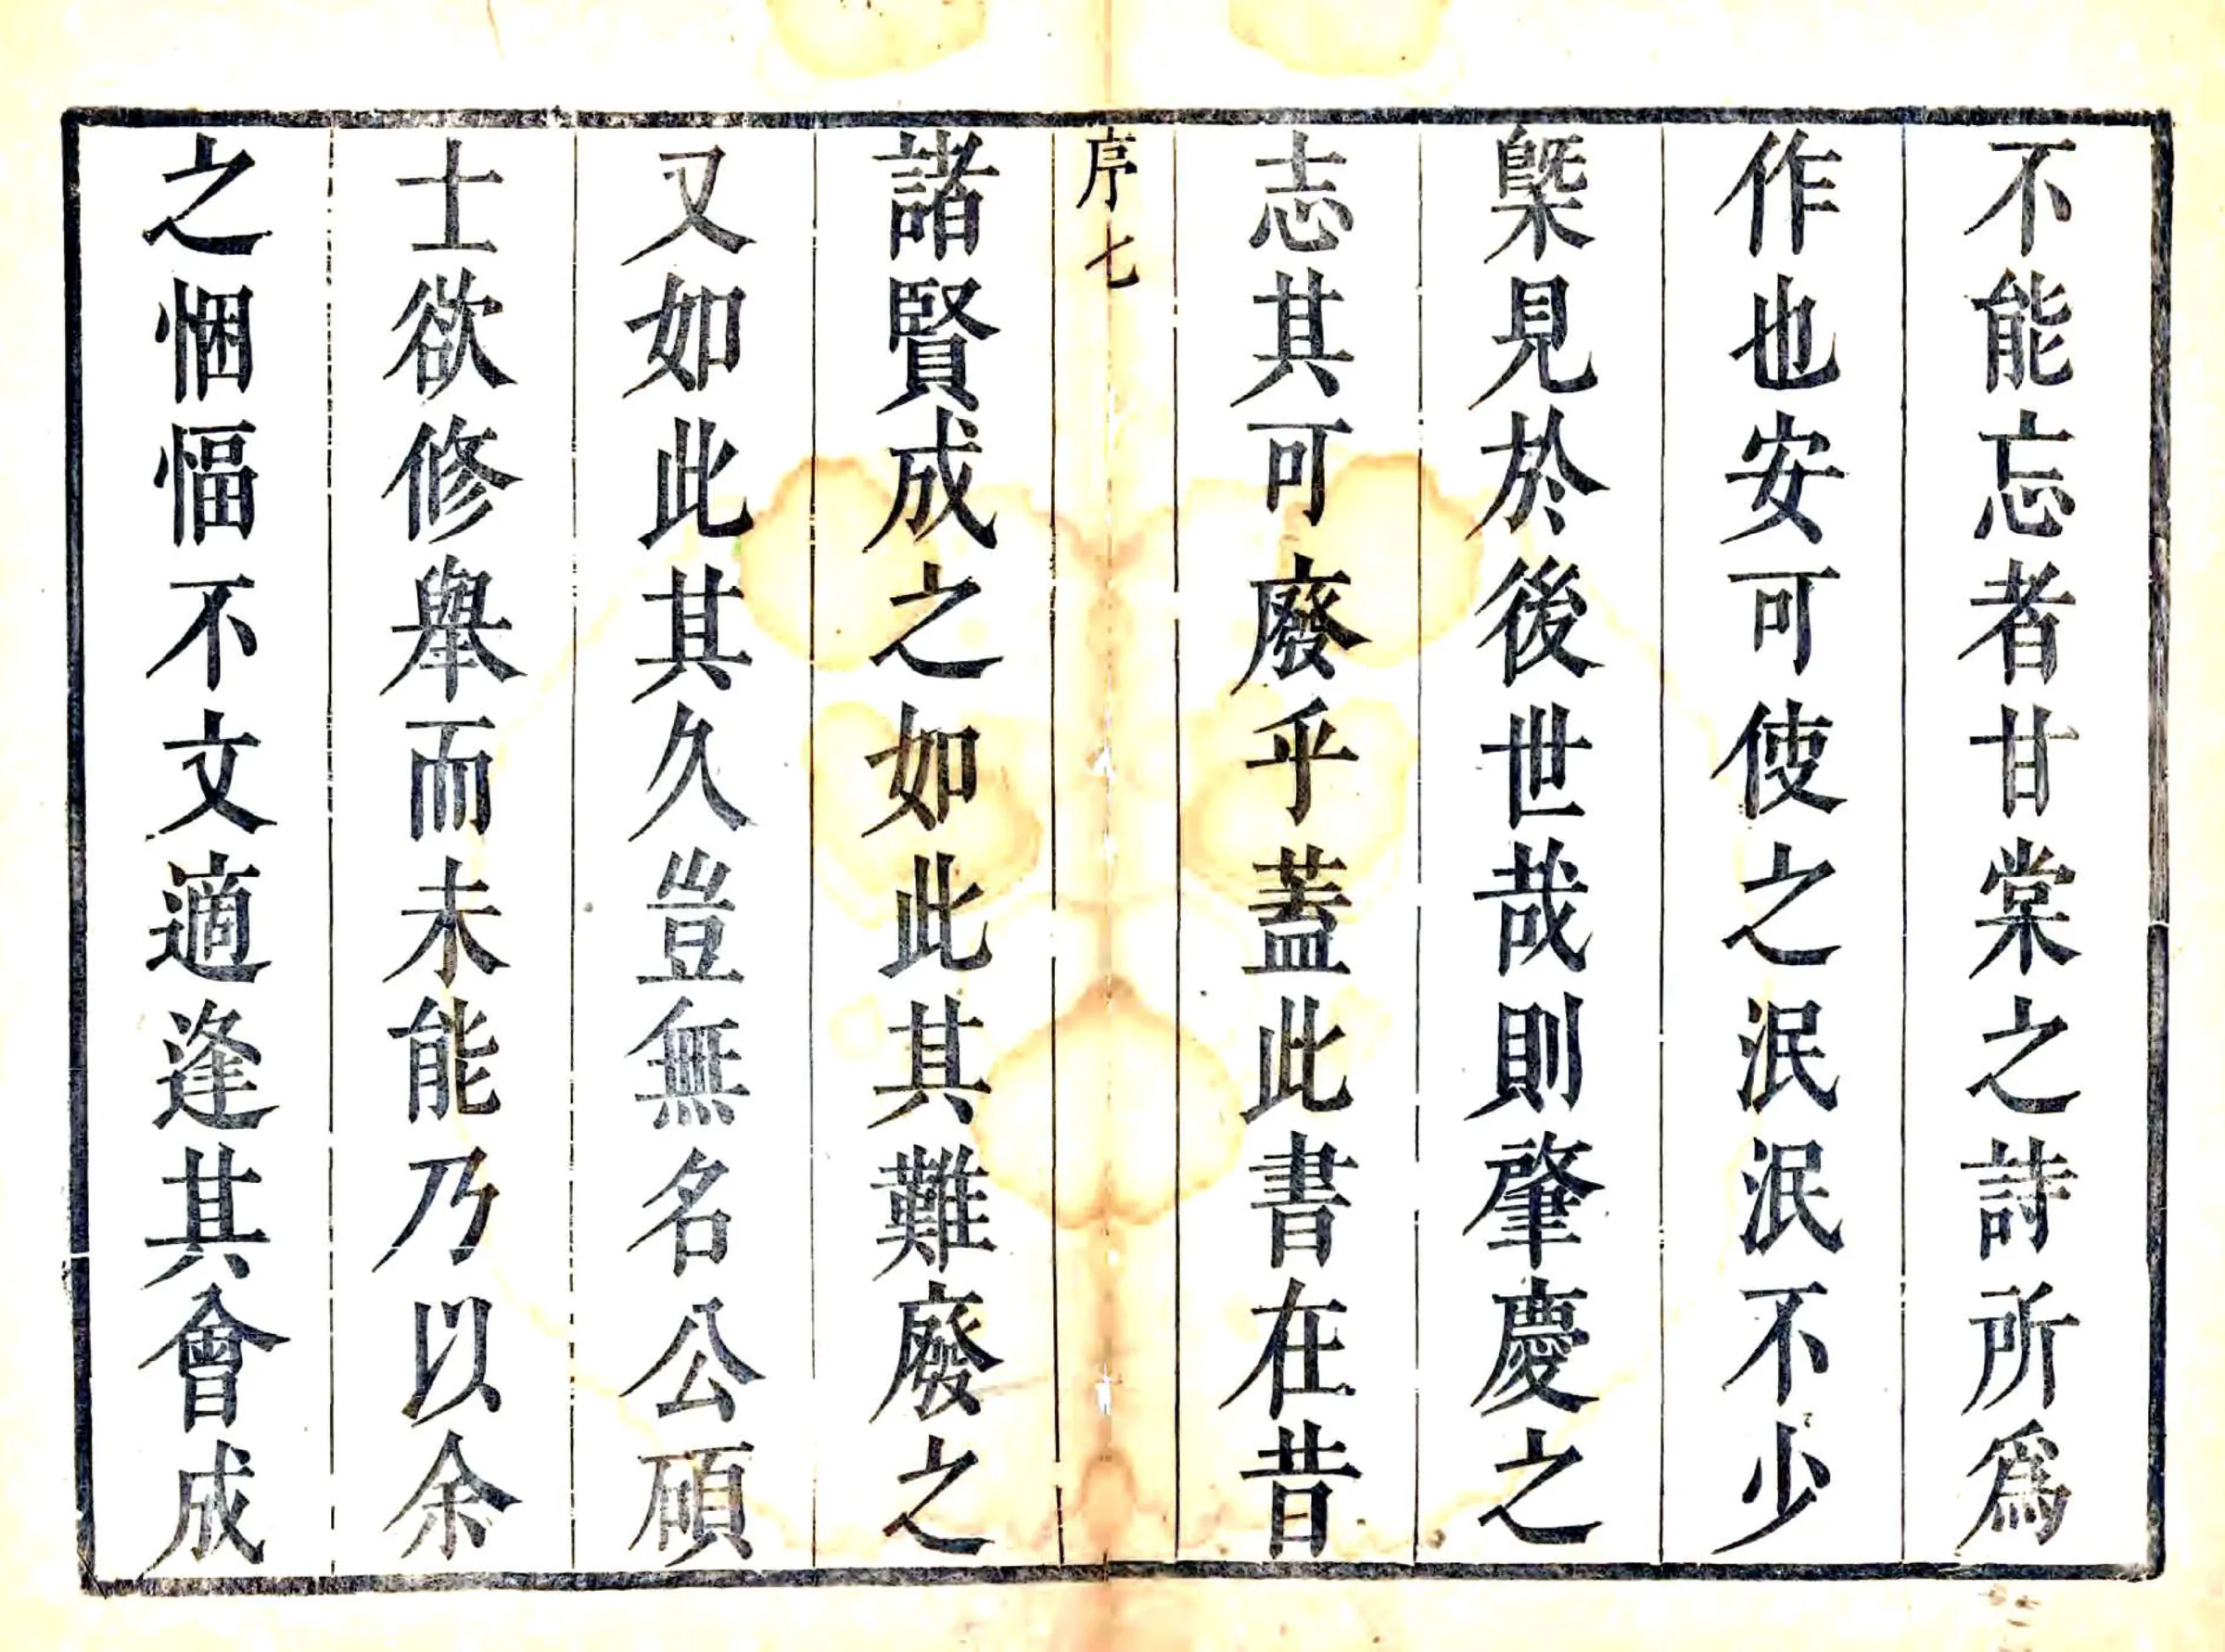 不能忘者甘棠之詩所爲
作也安可使之泯泯不少
槩見於後世哉則肇慶之
志其可廢乎蓋此書在昔
序七
諸賢成之如此其難廢之
又如此其久豈無名公碩
士欲修舉而未能乃以余
之悃愊不文適逢其會成